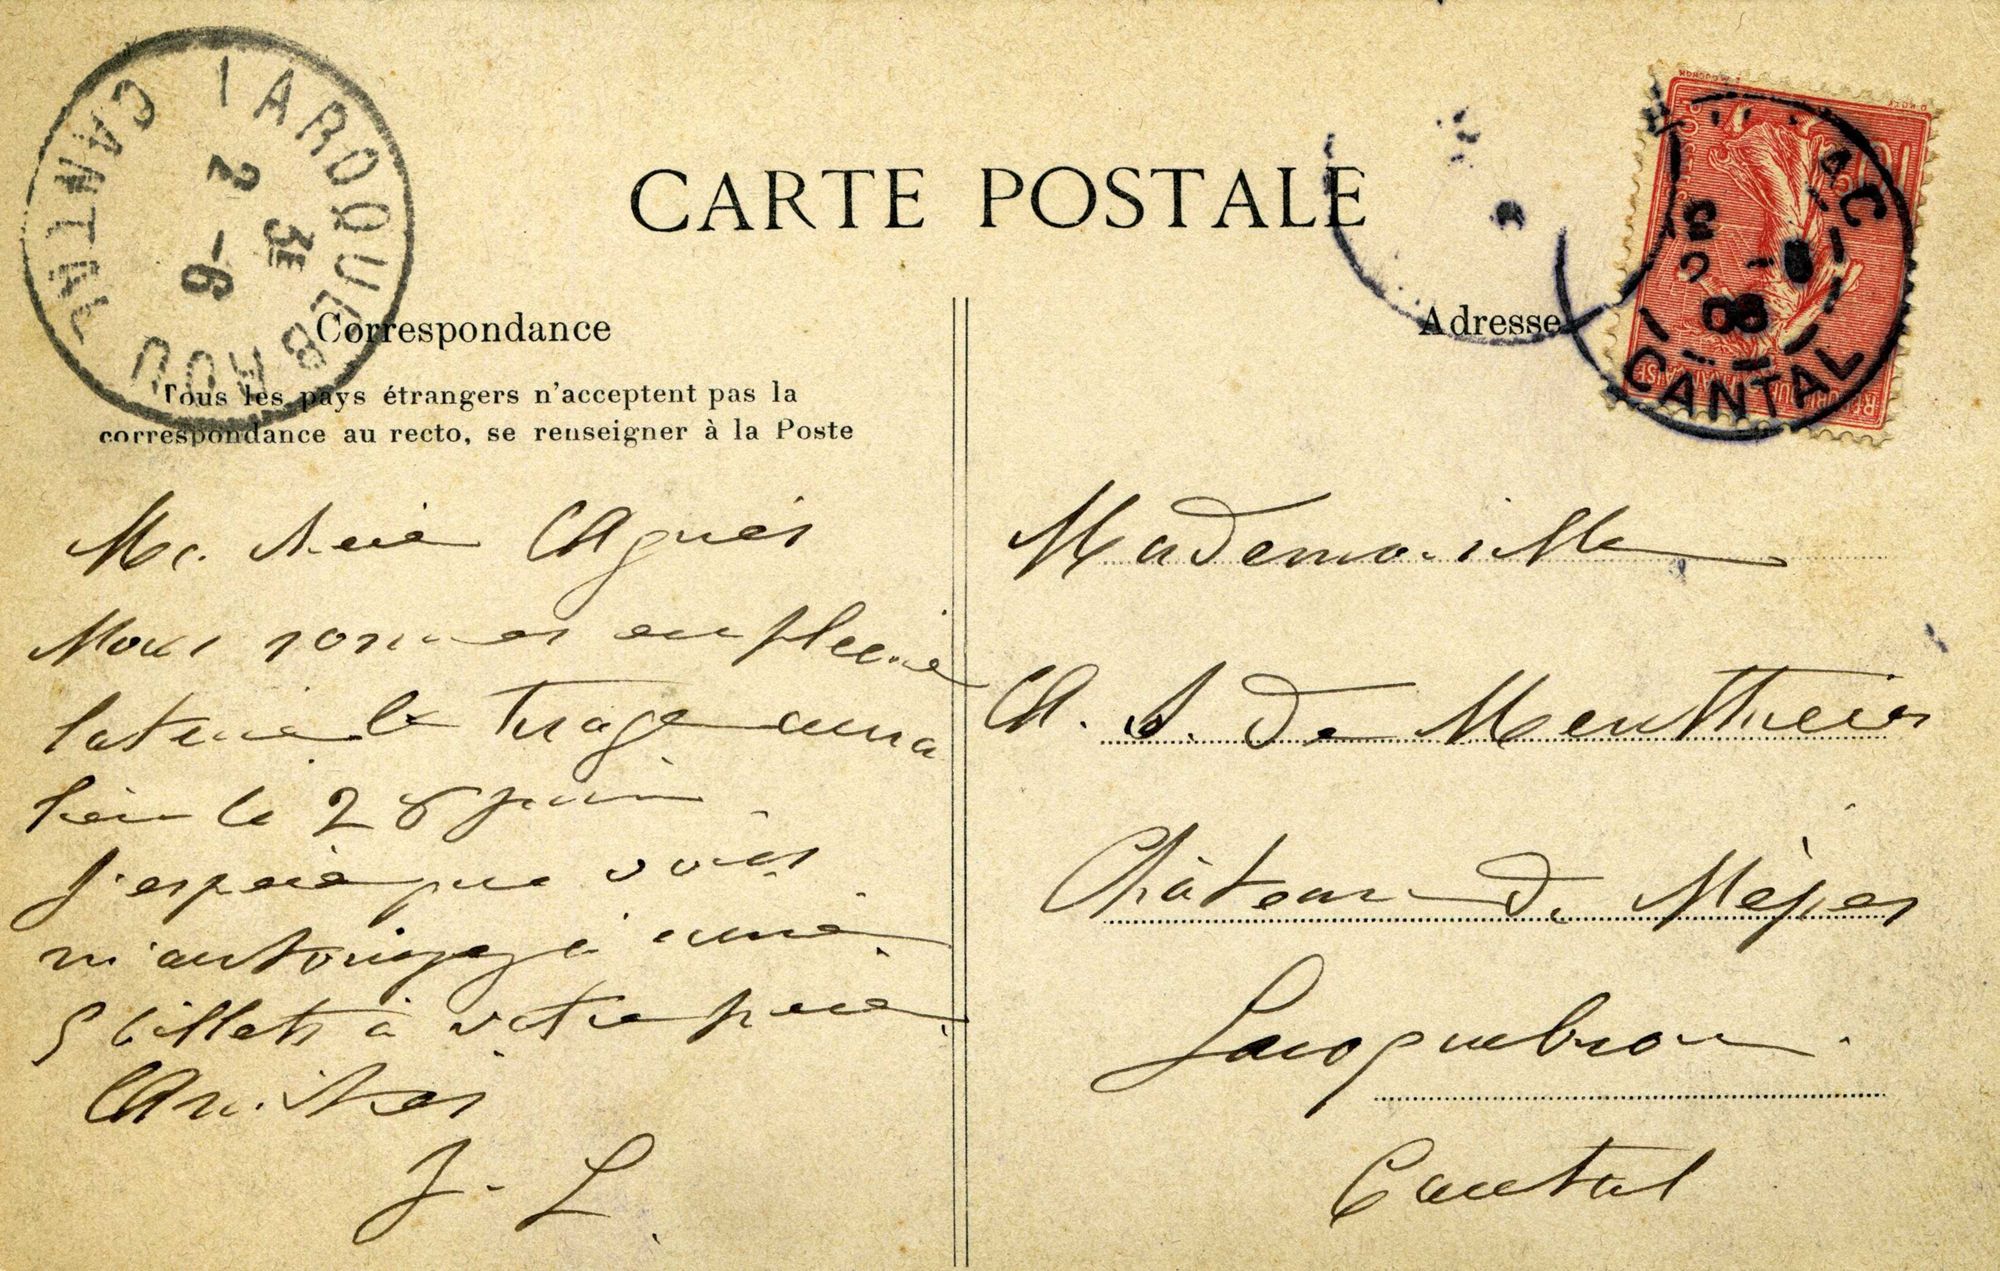 LAROQUEBROU
CANTAL
2 - 6
3E
CARTE POSTALE
Correspondance
Tous les pays étrangers n'acceptent pas la
correspondance au recto, se renseigner à la Poste
Ma chère Agnès
Nous sommes en pleine
loterie le tirage aura
lieu le 28 juin.
J'espère que vous
m'autorisez à
5 billets à votre père
Amitiés
J. L.
Adresse
AC
08
CANTAL
MOUCHON
Mademoiselle
A. S. de
Château de Nèpes
Laroquebrou.
Cantal